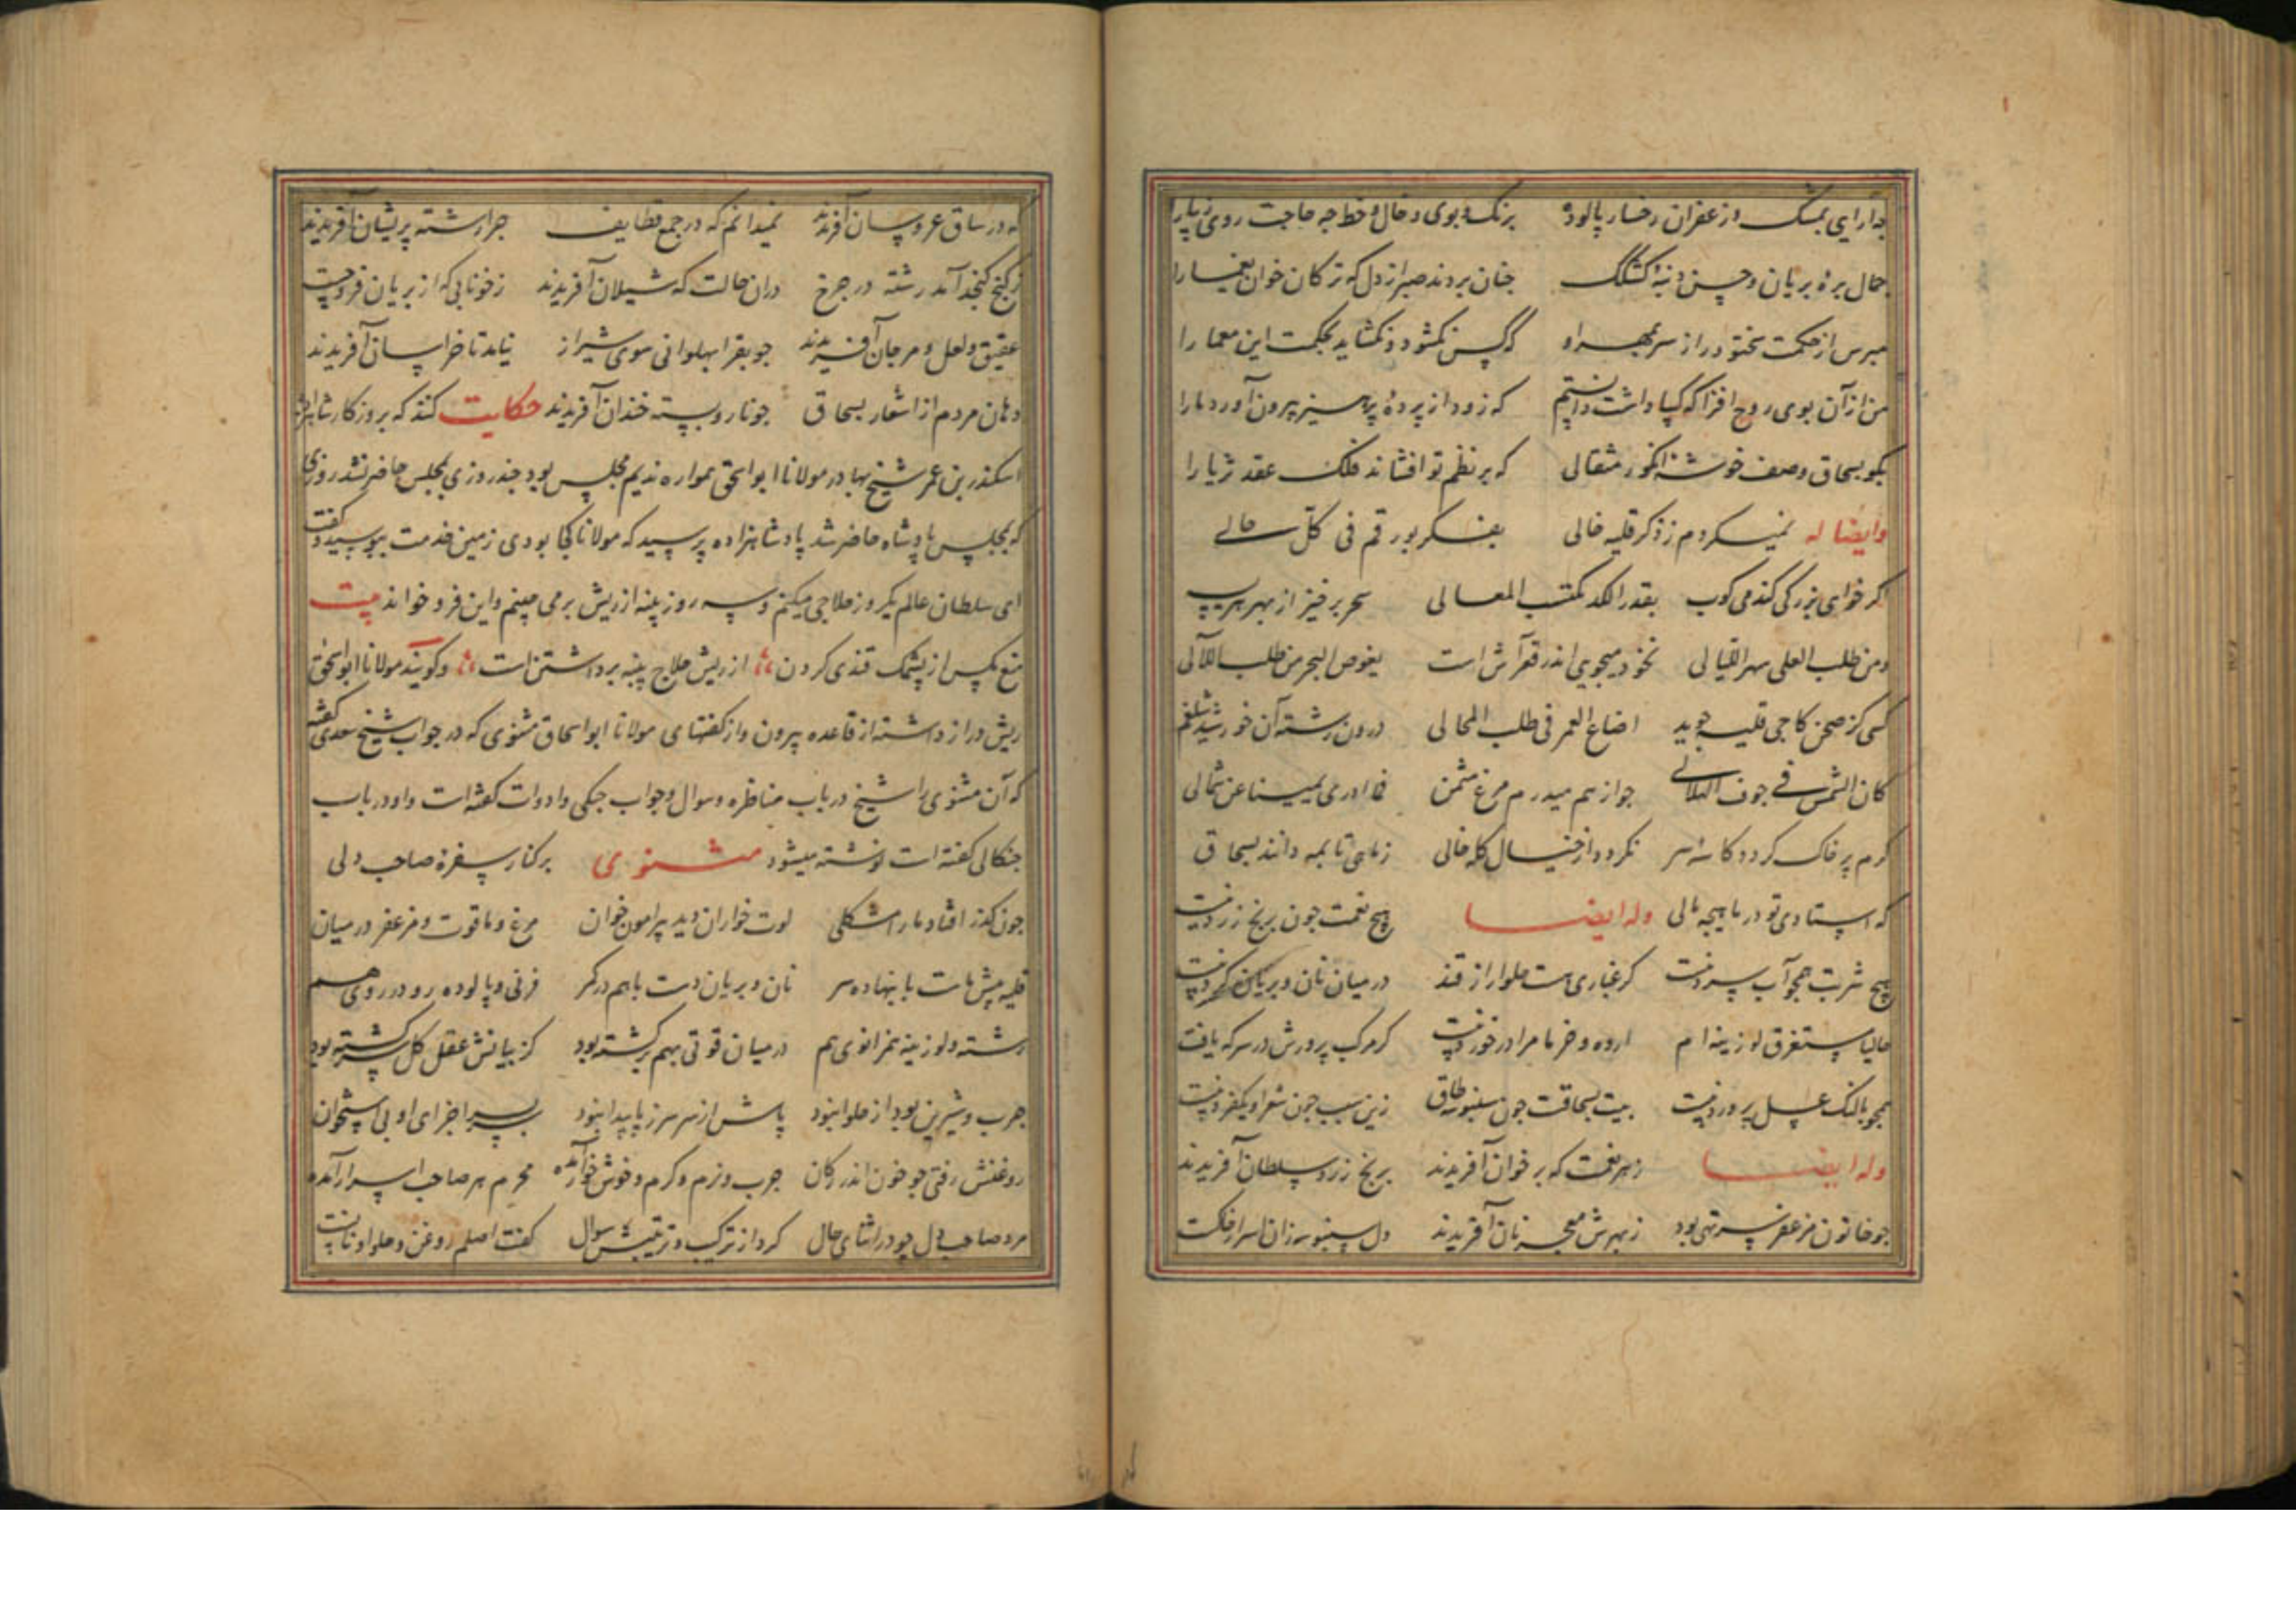 چه آرایی بمشک و زعفران رخسار پالوده برنک و بوی و خال و خط چه حاجت روی زیبا را
جمال بره بریان و حسن دنبه کشکک چنان بردند صبر از دل که ترکان خوان یغما را
مپرس از حکمت بختو دراز سر بمهر او که کس نکشود و نکشاید بحکمت این معما را
من از آن بوی روح افزا که کیپا داشت دانستم که زود از پرده پرهیز بیرون آورد ما را
بکو بسحاق وصف خوشه انکور مثقالی که بر نظم تو افشاند فلک عقد ثریا را
وایضا له نمیکردم ز ذکر قلیه خالی بفکر بورقم فی کل حالی
اکر خواهی بزرکی کندمی کوب بقدر الکد تکتسب المعالی سحر برخیز از بهر هریسه
ومن طلب العلی سهر اللیالی نخود میجویی اندر قعر آش است یغوص البحر من طلب اللآلی
کسی کز صحن کاجی قلیه جوید اضاع العمر فی طلب المحالی درون رشته آن خورشید شلغم
کان الشمس فی جوف الهلالی جواز هم میدرم مرغ مثمن فما ادری یمینا عن شمالی
کرم پر خاک کردد کاسه سر نکردد از خیال کله خالی ز ماهی تا بمه دانند بسحاق
که استادی تو در ماهیچه مالی وله ایضا هیچ نعمت جون برنج زرد نیست
هیچ شربت همچو آب سرد نیست کر غباری هست حلوا را از قند در میان نان و بریان کرد نیست
حالیا مستغرق لوزینه ام ارده و خرما مرا در خورد نیست کرمرکب پرورش در سرکه یافت
همجو بالنک عسل پرورد نیست بیت بسحاقت جون سنبوسه طاق زین سبب جون شعر او یکفرد نیست
وله ایضا ز هر نعمت که بر خوان آفریدند برنج زرد سلطان آفریدند
جو خاتون مزعفر سر تهی بود ز بهرش معجر نان آفریدند دل سنبوسه زان اسرار خکت
که در ساق عروسان آفریدند نمیدانم که در جمع قطایف چرا رشته پریشان آفریدند
ز کنج کنجد آمد رشته در جرخ دران حالت که شیلان آفریدند ز خونابی که از بریان فرو جست
عقیق و لعل و مرجان آفریدند جو بقرا بهلوانی سوی شیراز نیامد تا خراسان آفریدند
دهان مردم از اشعار بسحاق جو نار و پسته خندان آفریدند حکایت کنند که بروزکار شاهزاده
اسکندر بن عمر شیخ بهادر مولانا ابو اسحق همواره ندیم مجلس بود چند روزی بمجلس حاضر نشد روزی
که بمجلس پادشاه حاضر شد پادشاهزاده پرسید که مولانا کجا بودی زمین خدمت ببوسید و کفت
ای سلطان عالم یکروز حلاجی میکنم و سه روز پنبه از ریش بر می چینم و این فرد خواند بیت
منع مکس از پشمک قندی کردن از ریش حلاج پنبه برداشتن است و کویند مولانا ابو اسحق
ریش دراز داشته از قاعده بیرون و از کفتهای مولانا ابو اسحاق مثنوی که در جواب شیخ سعدی کفته
که آن مثنوی را شیخ در باب مناظره و سوال و جواب جنکی و ادوات کفته است و او در باب
جنکالی کفته است نوشته میشود مثنوی بر کنار سفره صاحب دلی
جون کذر افتاد ما را مشکلی لوت خواران دید پیرامون خوان مرغ و ماقوت و مزعفر در میان
قلیه پیش هات پا بنهاده سر نان و بریان دست با هم در کمر فرنی و پالوده رو در روی هم
رشته و لوزینه همزانوی هم در میان قوتی بهم سرکشته بود کز بیانش عقل کل سرکشته بود
جرب و شیرین بود از حلوا نبود پاش از سر سر ز پا پیدا نبود سربسر اجزای او بی استخوان
روغنش رفتی جو خون اندر رکان جرب و نرم و کرم و خوش خوار آمده محرم هر صاحب اسرار آمده
مرد صاحب دل جو در اثنای حال کرد از ترکیب و ترتیبش سوال کفت اصلم روغن و حلوا و نانست